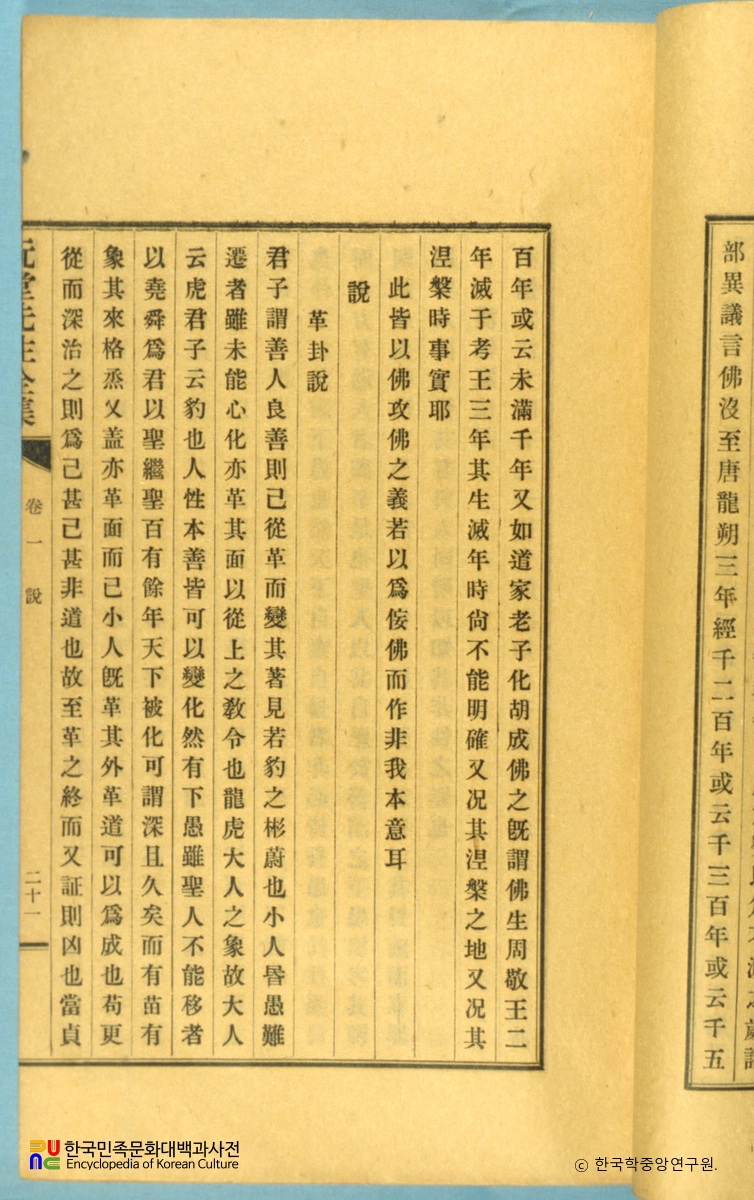 部異議言佛沒至唐龍朔三年經千二百年或云千三百年或云千五
百年或云未滿千年又如道家老子化胡成佛之既謂佛生周敬王二
年滅于考王三年其生滅年時尙不能明確又况其涅槃之地又况其
涅槃時事實耶
此皆以佛攻佛之義若以爲侫佛而作非我本意耳
說
革卦說
君子謂善人良善則己從革而變其著見若豹之彬蔚也小人昬愚難
遷者雖未能心化亦革其面以從上之敎令也龍虎大人之象故大人
云虎君子云豹也人性本善皆可以變化然有下愚雖聖人不能移者
以堯舜爲君以聖繼聖百有餘年天下被化可謂深且久矣而有苗有
象其來格烝乂盖亦革面而已小人旣革其外革道可以爲成也苟更
從而深治之則爲己甚己甚非道也故至革之終而又証則凶也當貞
阮堂先生全集
卷一 說
二十一
한국민족문화대백과사전
Encyclopedia of Korean Culture
ⓒ 한국학중앙연구원.